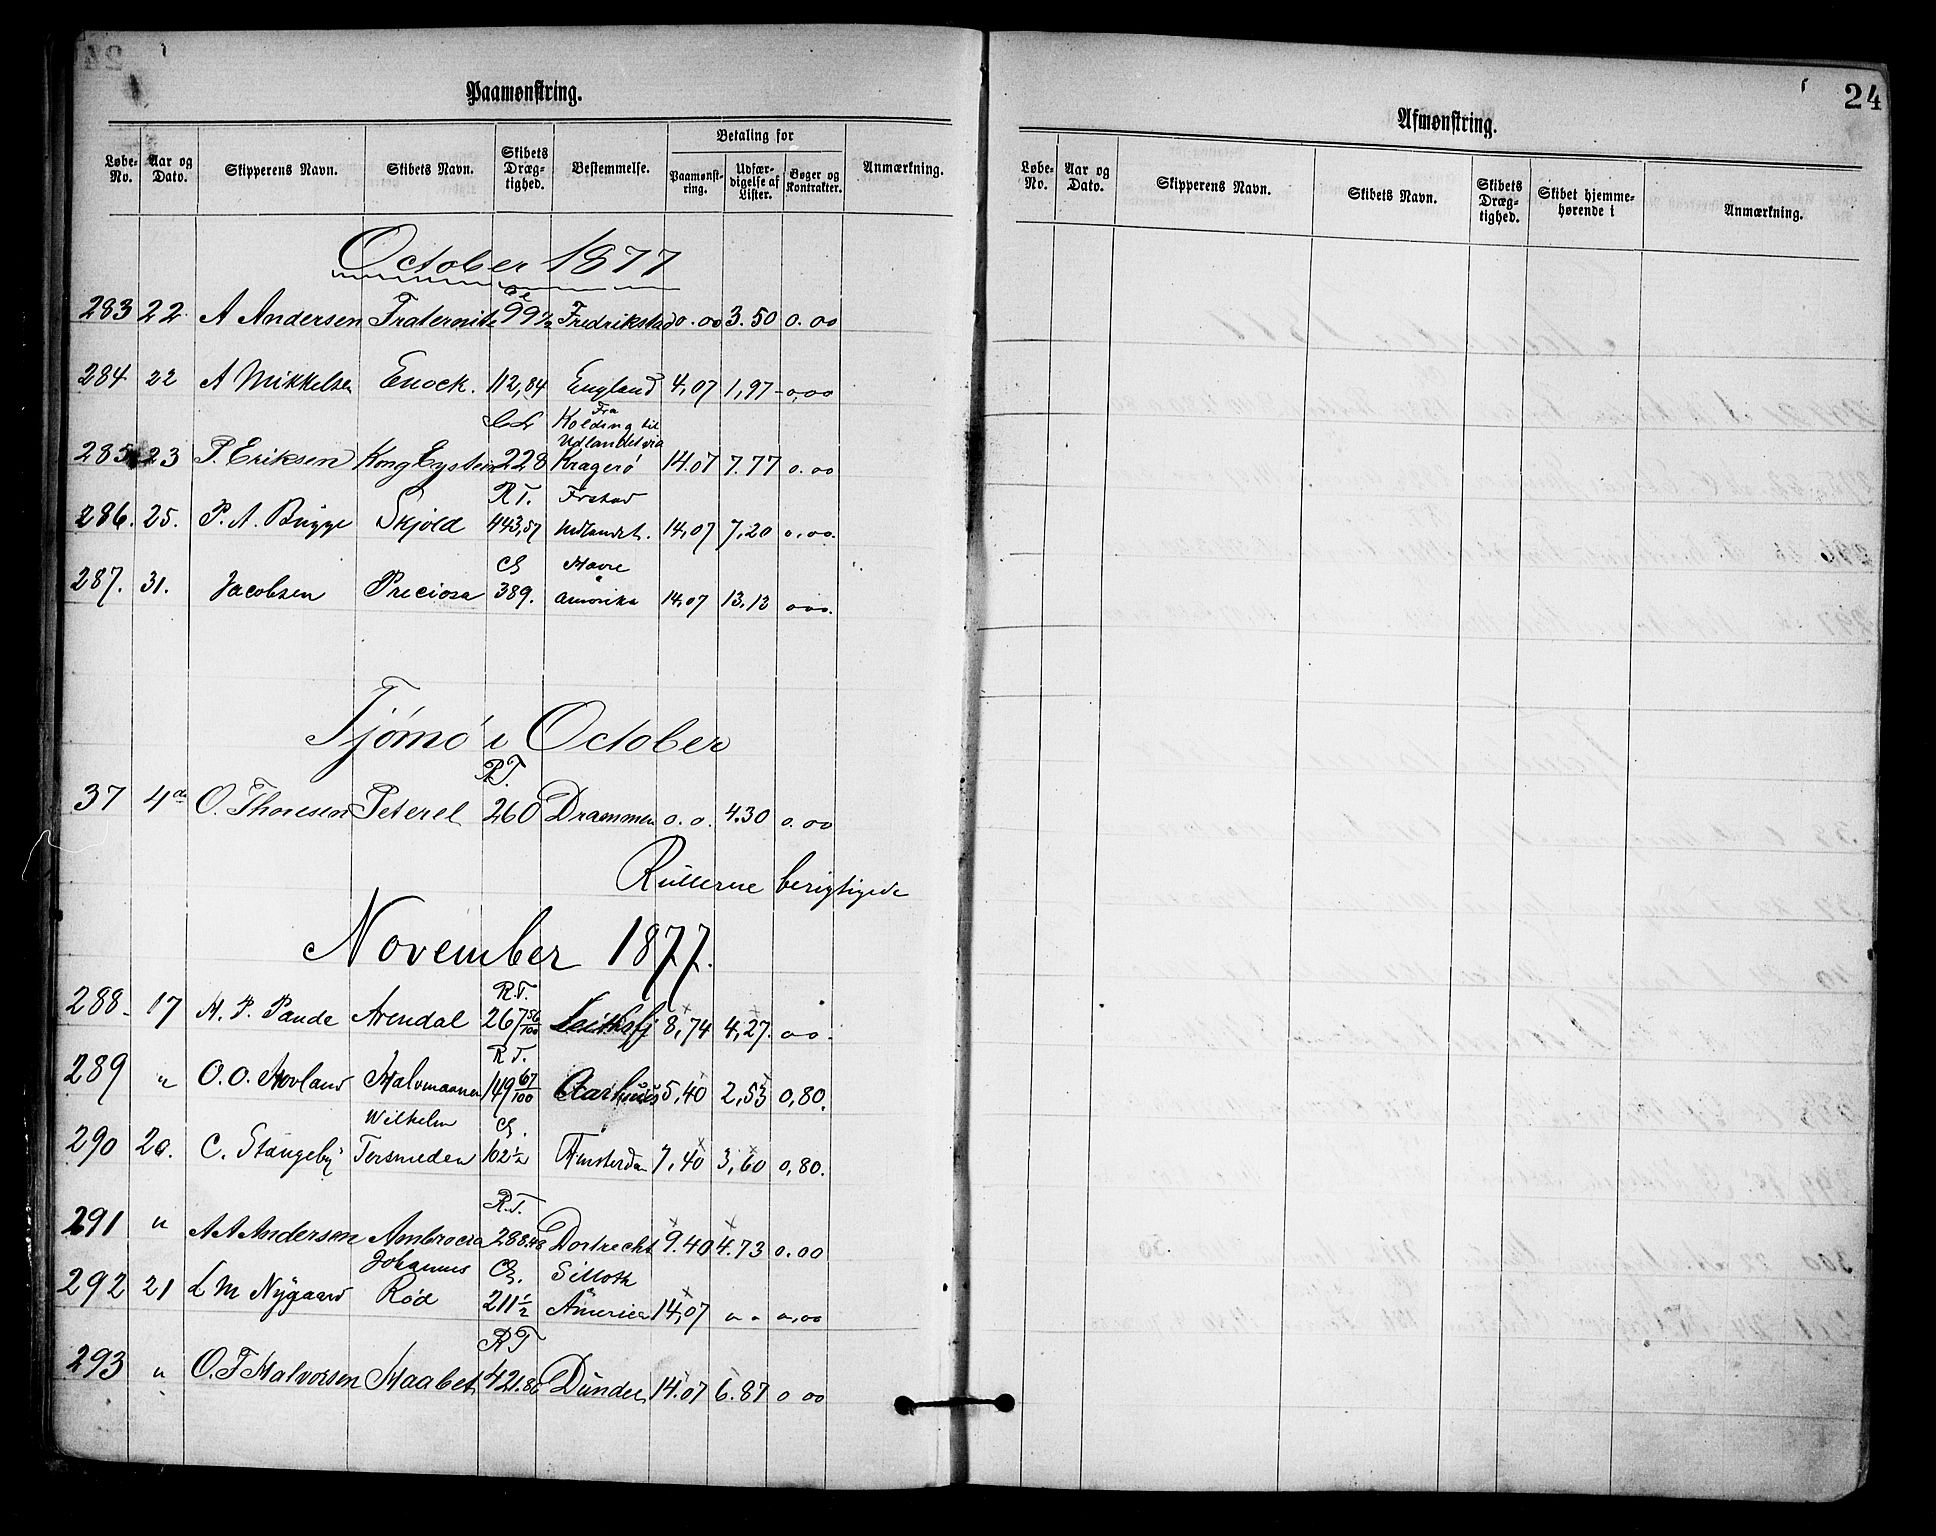 Paamønstring.
Løbe-No. Aar og Dato. Skipperens Navn. Skibets Navn. Skibets Dræg-tighed. Bestemmelse. Betaling for Paamønst-ring. Udfær-digelse af Lister. Bøger og Kontrakter. Anmærkning.
October 1877
283 22. A Andersen Fraternite 99½ Fredrikstad 0.00 3.50 0.00
284 22 A Mikkelsen Enock. 112,84 England 4,07 1,97 0,00
CL Fra Kolding til Udlandet via
285 23 P. Eriksen Kong Eystein 228 Kragerö 14.07 7.77 0.00
R T. Frstad
286. 25. P. A. Bugge Skjöld 443,57 Udlandet. 14,07 7,20 0,00.
Cl Havre
287. 31. Jacobsen Preciosa 389. Amerika 14,07 13,13 000.
Tjömö i October
R.T.
37 4de O. Thoresen Peterel 260 Drammen 0.0. 4.30 0.00
Rullerne berigtigede
November 1877.
R.T.
288 17 H. P. Paude Arendal 267 56/100 8,74 4,27. 00.
R T.
289 " O. O. Hovland Halvmaanen 149 67/100 Aarhuus 5,40 2,53 0,80.
Wilhelm Cl.
290 20. C. Stangeby Tersmeden 102½ Amsterdam 7,40 3,60 0,80.
R.T.
291 " A A Andersen Ambrocia 288.48 Dortrecht 9.40 4.73 0.00
Johannes Cl. Silloth
292 21 L M Nygaard Röd 211½ America 14,07 " " 0,00
R T
293 " O. T Halvorsen Haabet 421.86 Dundee 14.07 6.87 0 00
24
Afmønstring.
Løbe-No. Aar og Dato. Skipperens Navn. Skibets Navn. Skibets Dræg-tighed. Skibet hjemme-hørende i Anmærkning.